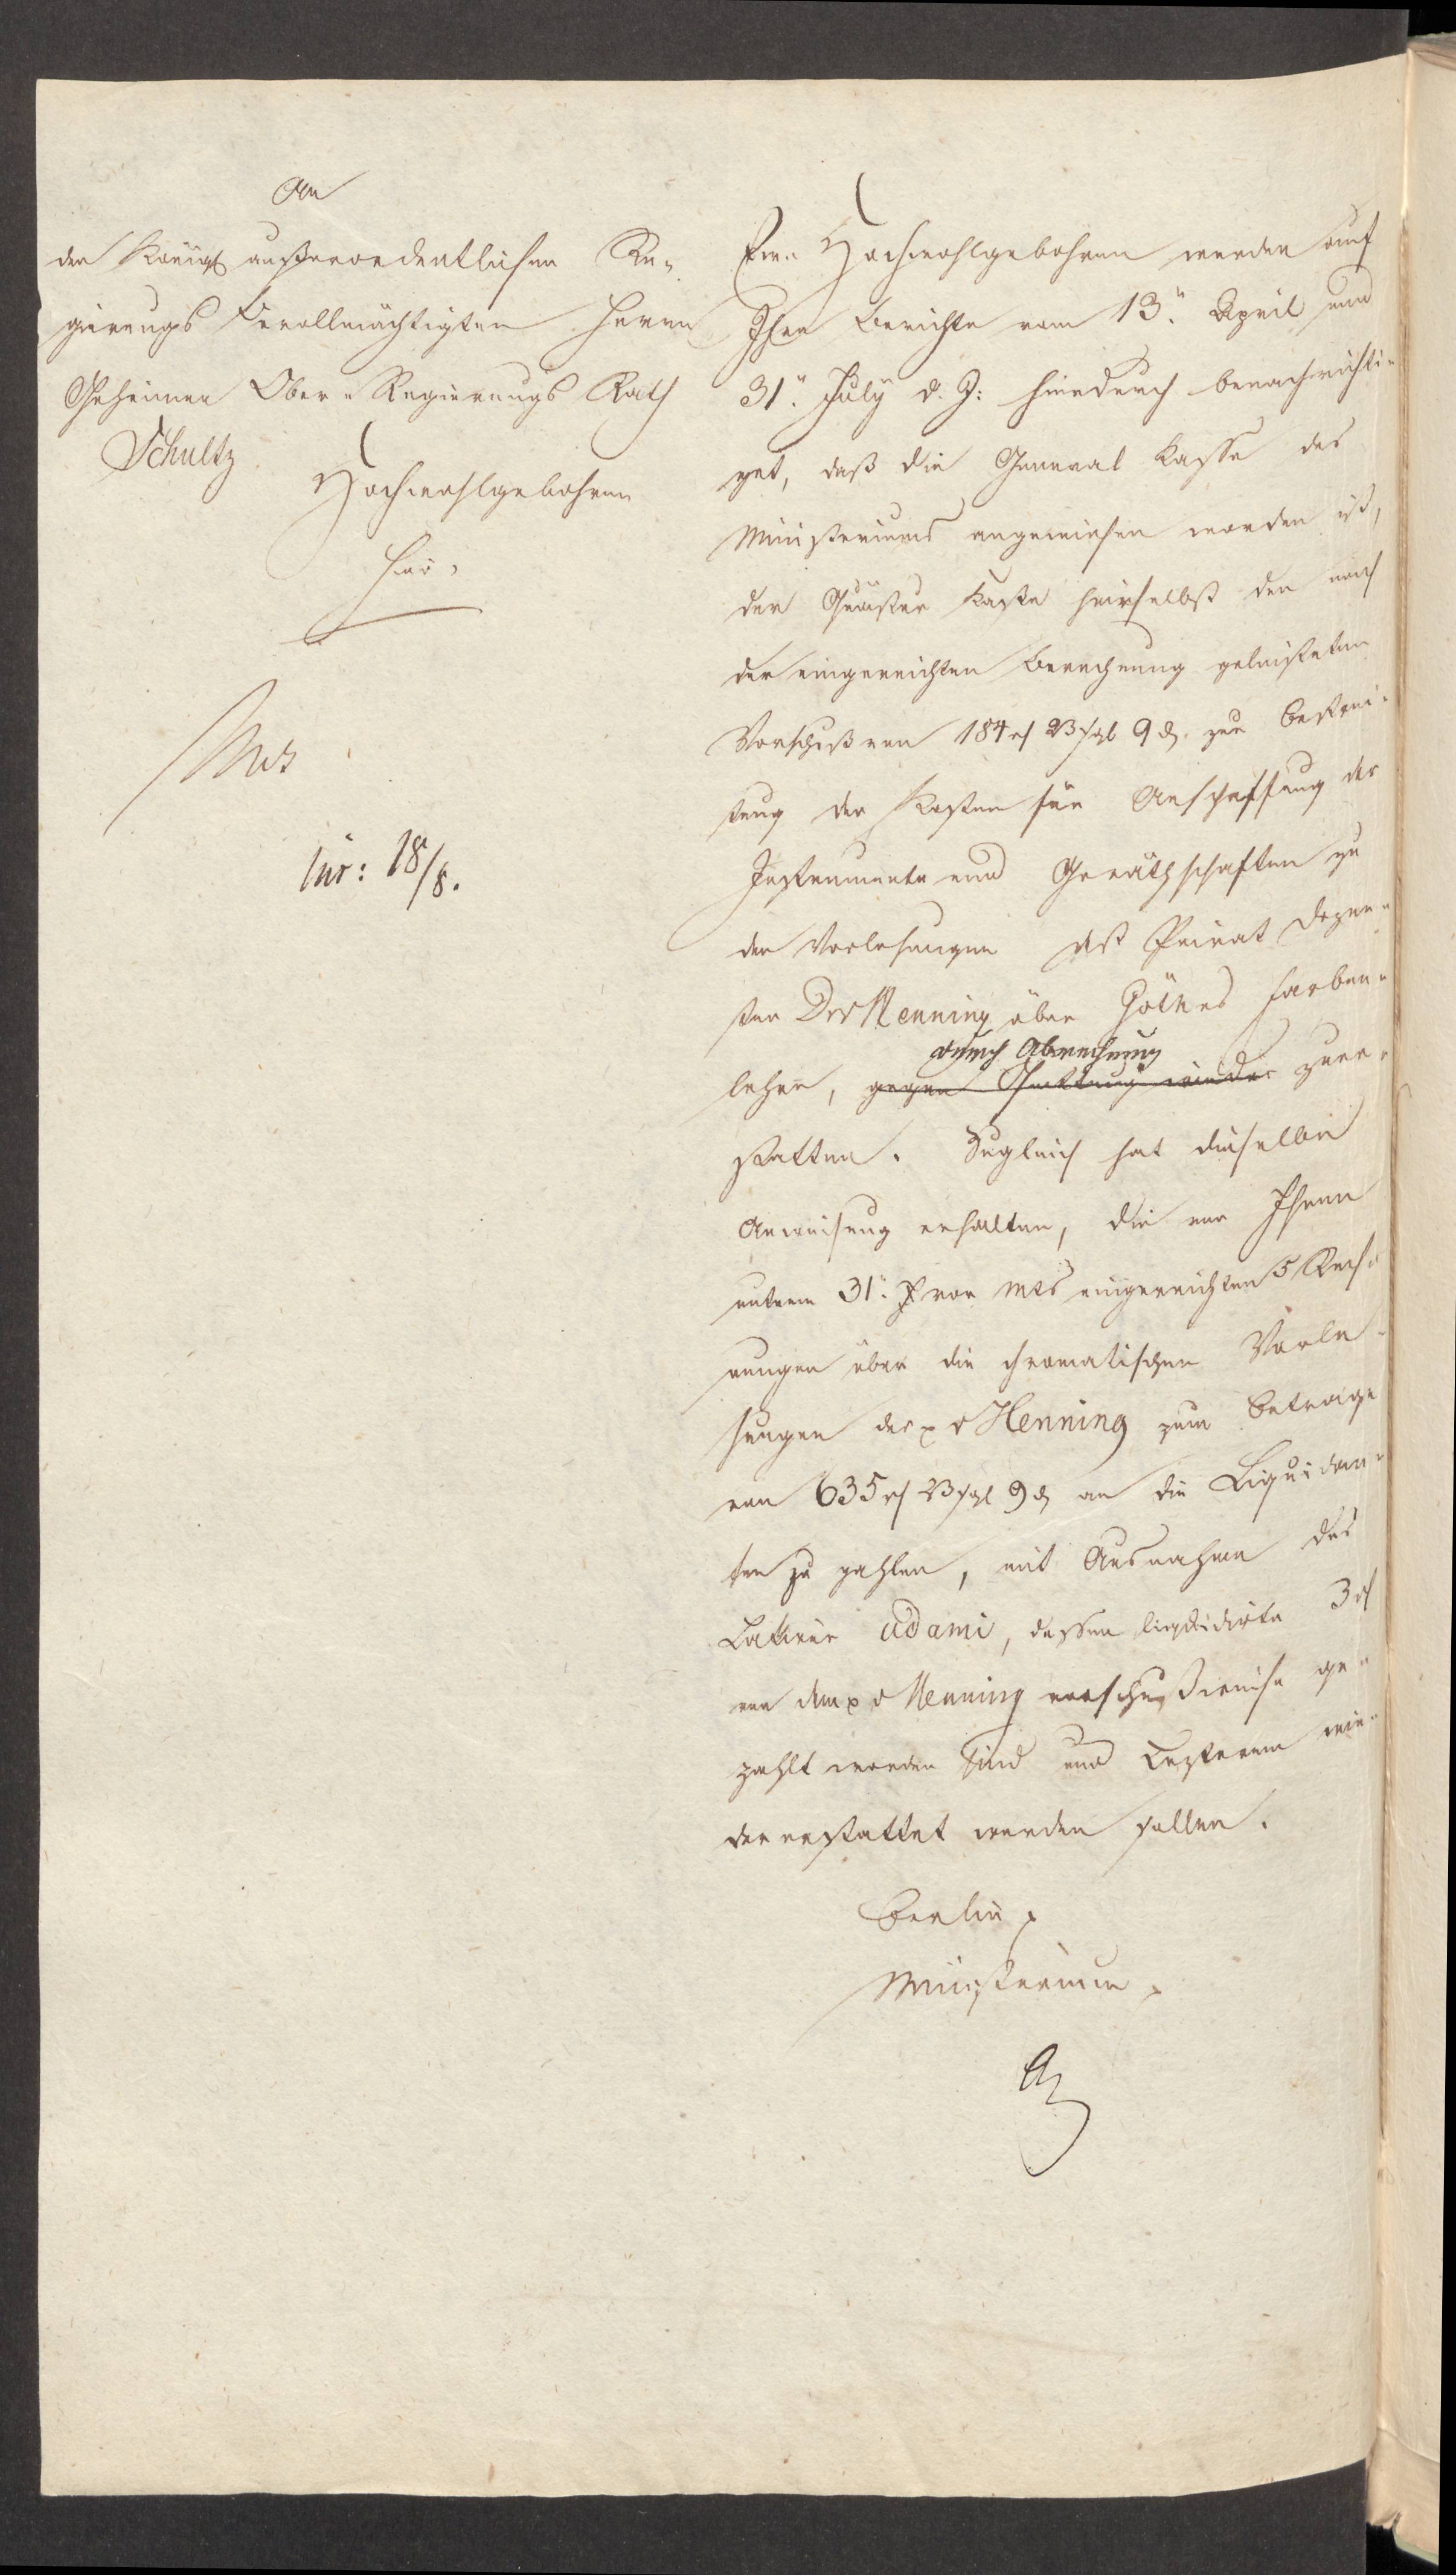 An
den Königl außerordentlichen Re-
gierungs Bevollmächtigten Herrn
Geheimen Ober-Regierungs Rath
Schultz
Hochwohlgebohren
hier.
Ew. Hochwohlgebohren werden auf
Ihre Berichte vom 13. April und
31. July d. J: hierdurch benachrichti-
get, daß die General Kasse des
Ministeriums angewiesen worden ist,
der Quästur Kasse hierselbst den nach
der eingereichten Berechnung geleisteten
Vorschuß von 184 rf 23 sgl 9 d. zur Bestrei-
tung der Kosten für Anschaffung der
Instrumente und Geräthschaften zu
den Vorlesungen des Privat Dozen-
ten Dr v Henning über Göthes Farben-
durch Abrechnung
lehre, gegen Quittung wieder zu er-
statten. Zugleich hat dieselbe
Anweisung erhalten, die von Ihnen
unterm 31. vor Mts eingereichten 5 Rech-
nungen über die chromatischen Vorle-
sungen des p v Henning zum Betrage
von 635 rf 23 sgl 9 d an die Liquidan-
ten zu zahlen, mit Ausnahme des
Lakirer Adami, dessen liquidirte 3 rf
von dem p v Henning vorschußweise ge-
zahlt worden sind und Letzterem wie-
der erstattet werden sollen.
Berlin
Ministerium
18/8.